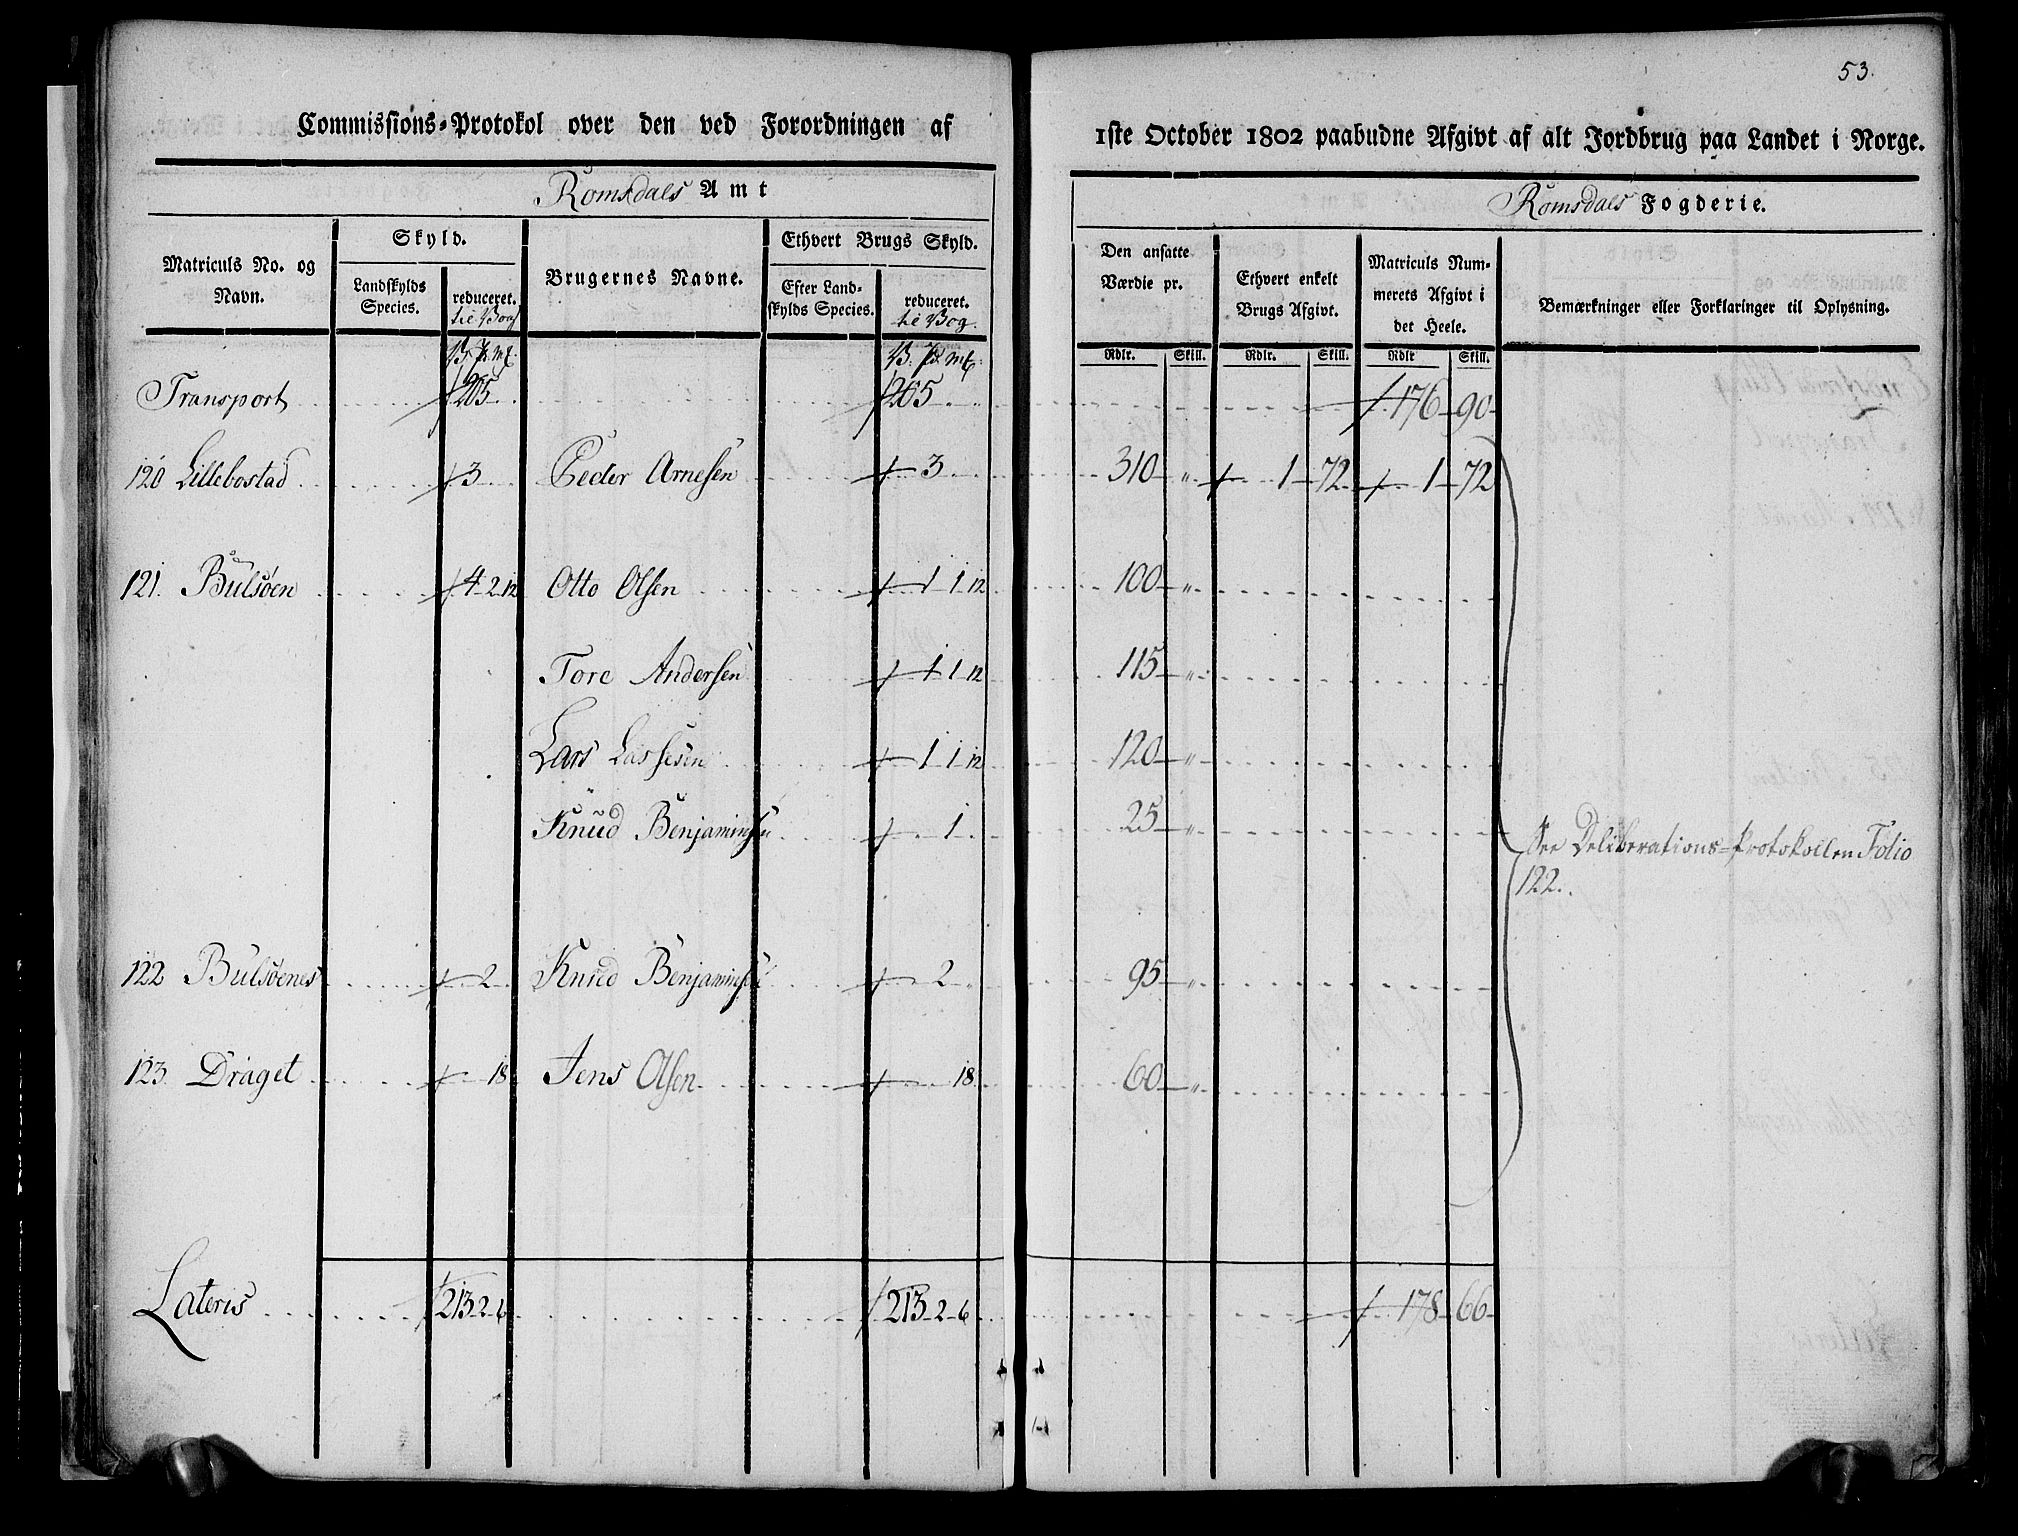 53.
Commissions-Protokol over den ved Forordningen af 1ste October 1802 paabudne Afgivt af alt Jordbrug paa Landet i Norge.
Romsdals Amt
Romsdals Fogderie.
Matriculs No. og Navn.
Skyld.
Landskylds Species.
reduceret. til Bog
Brugernes Navne.
Ethvert Brugs Skyld.
Efter Landskylds Species.
reduceret. til Bog.
Den ansatte Værdie pr.
Ethvert enkelt Brugs Afgivt.
Matriculs Nummerets Afgivt i det Heele.
Bemærkninger eller Forklaringer til Oplysning.
Rdlr. Skill. Rdlr. Skill. Rdlr Skill.
Transport 205 205 176 90
120 Lillebostad 3 Peder Arnesen 3 310 " 1 72 1 72
121. Bulsøen 4 2 12 Otto Olsen 1 1 12 100 "
Tore Andersen 1 1 12 115 "
Lars Lassesen 1 1 12 120 "
Knud Benjaminsen 1 25 "
See Deliberations-Protokollen Folio
122.
122 Bulsøenes 2 Knud Benjaminsen 2 95 "
123. Draget 18 Jens Olsen 18 60 "
Lateris 213 2 6 213 2 6 178 66